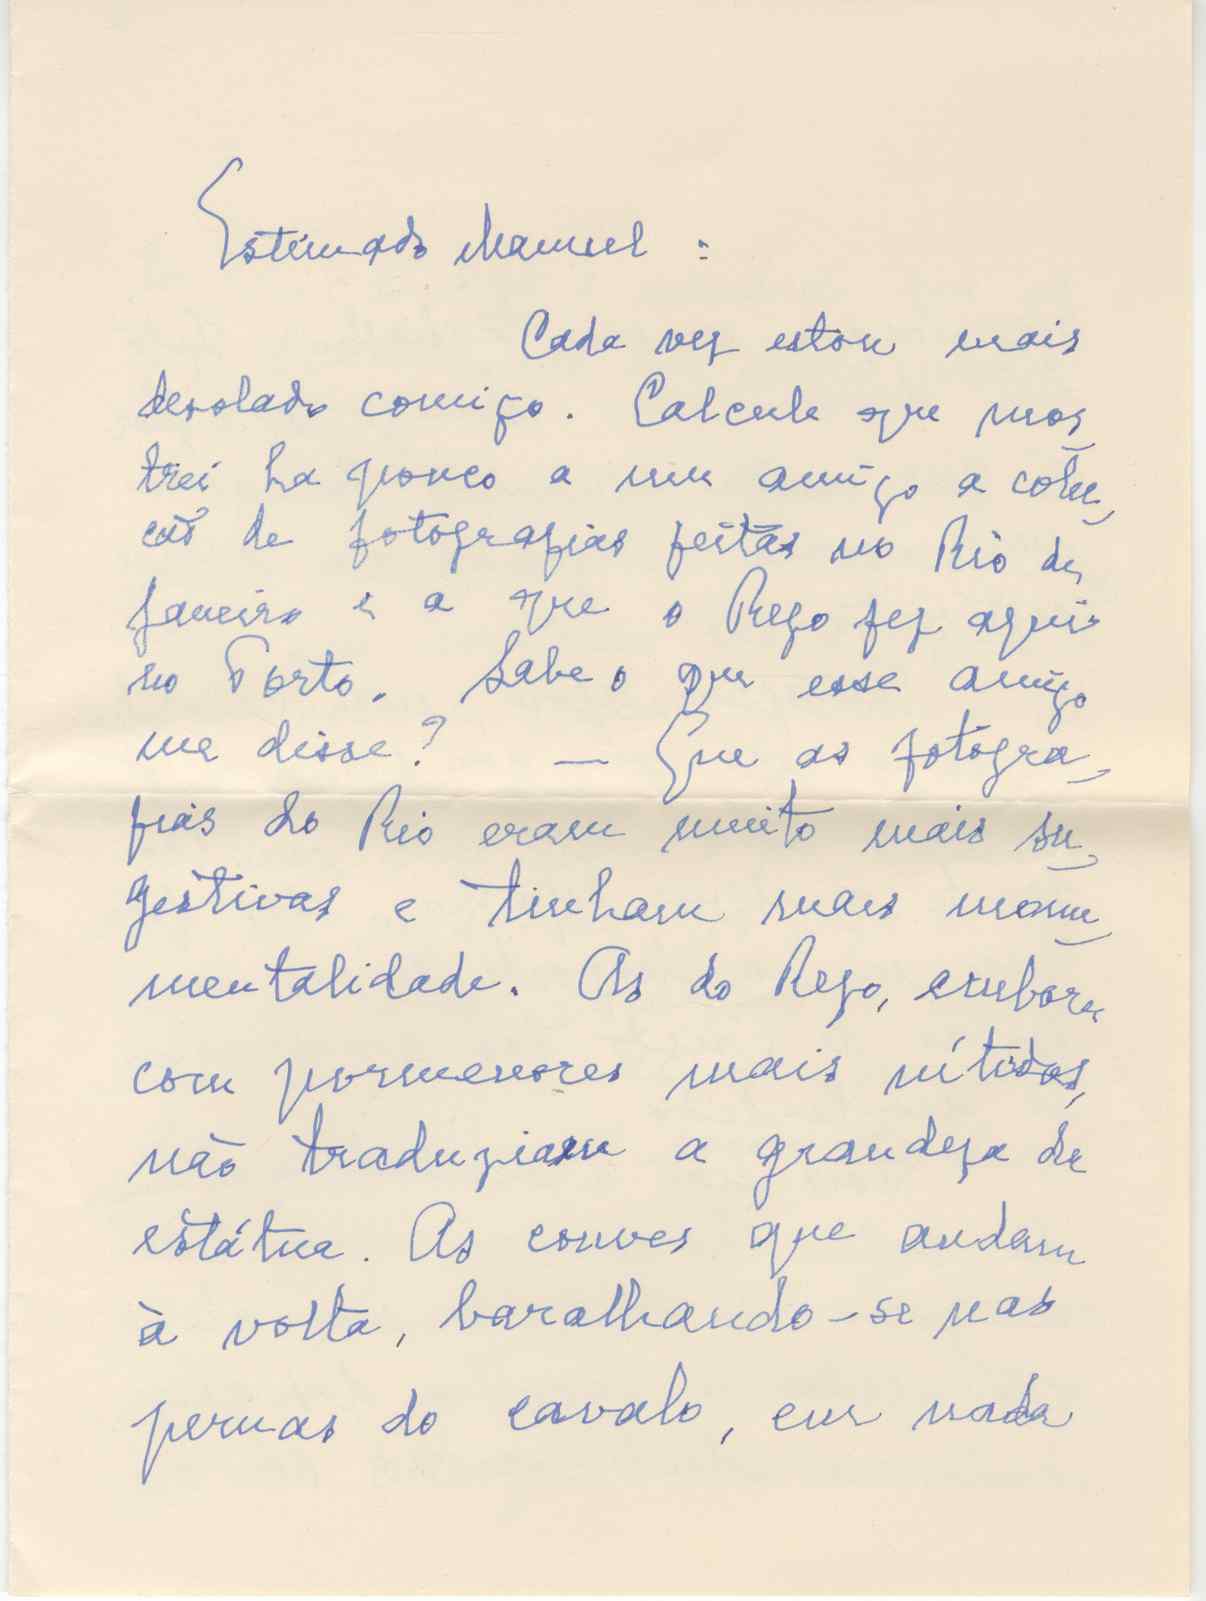 Estimado Manuel :
Cada vez estou mais
desolado comigo. Calcule que mos-
trei ha pouco a um amigo a colec-
ção de fotografias feitas no Rio de
Janeiro e a que o Rego fez aqui
no Porto. Sabe o que esse amigo
me disse? — Que as fotogra-
fias do Rio eram muito mais su-
gestivas e tinham mais monu-
mentalidade. As do Rego, embora
com pormenores mais nítidos,
não traduziam a grandeza da
estátua. As couves que andam
à volta, baralhando-se nas
pernas do cavalo, em nada